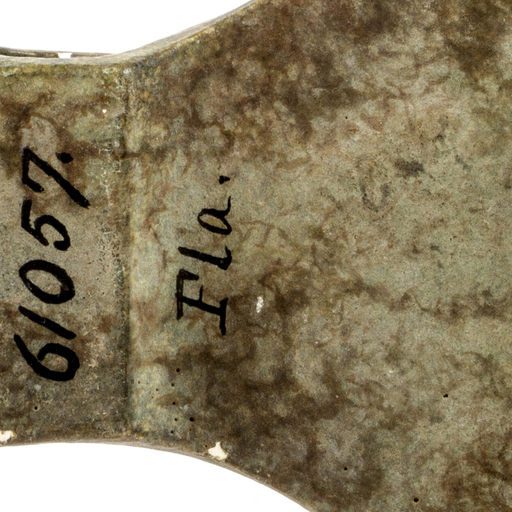 61057.
Fla.